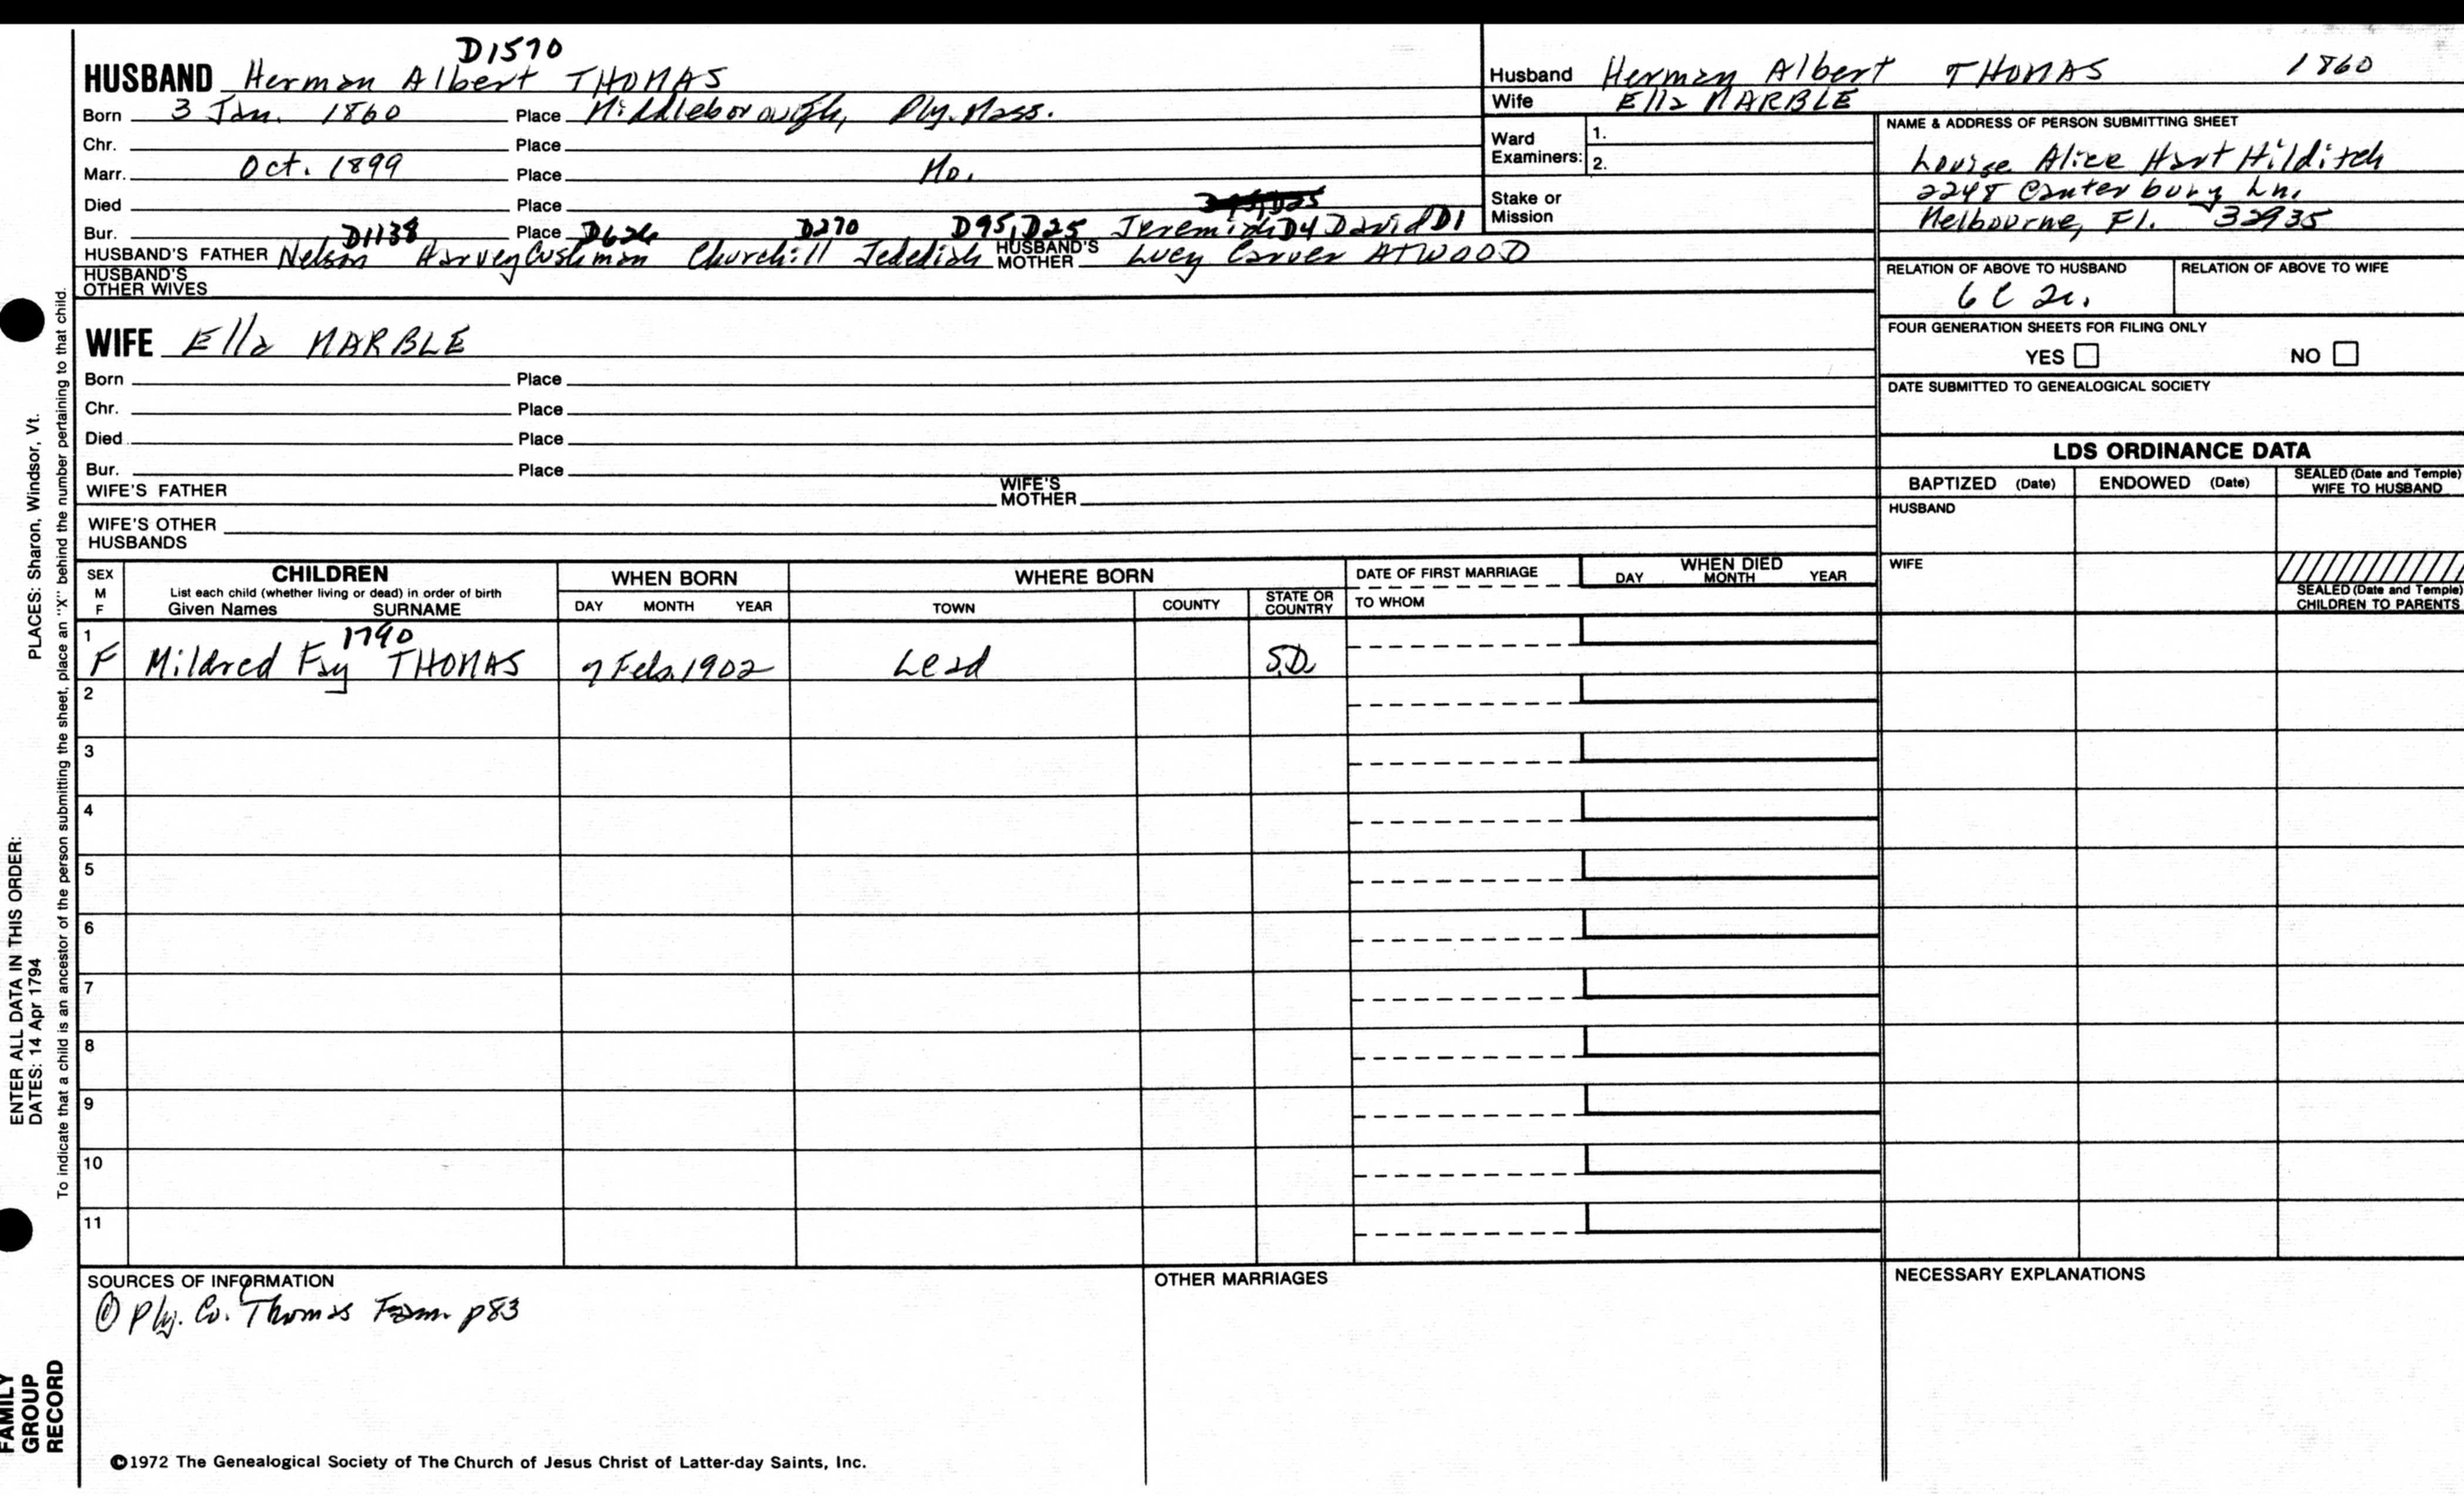 D1570
HUSBAND Herman Albert THOMAS
Born 3 Jan. 1860 Place Middleborough, Ply. Mass.
Chr. Place
Marr. Oct. 1899 Place Mo.
Died Place
Bur. Place
D1138 D626 D270 D95, D25 Jeremiah D4 David D1
HUSBAND'S FATHER Nelson Harvey Cushman Churchill Jedediah HUSBAND'S MOTHER Lucy Carver ATWOOD
HUSBAND'S OTHER WIVES
Husband Herman Albert THOMAS 1860
Wife Ella MARBLE
Ward Examiners: 1.
2.
Stake or Mission
NAME & ADDRESS OF PERSON SUBMITTING SHEET
Louise Alice Hart Hilditch
2248 Canterbury Ln.
Melbourne, Fl. 32935
RELATION OF ABOVE TO HUSBAND RELATION OF ABOVE TO WIFE
6C 2r.
FOUR GENERATION SHEETS FOR FILING ONLY
YES NO
DATE SUBMITTED TO GENEALOGICAL SOCIETY
WIFE Ella MARBLE
Born Place
Chr. Place
Died Place
Bur. Place
WIFE'S FATHER WIFE'S MOTHER
WIFE'S OTHER HUSBANDS
LDS ORDINANCE DATA
BAPTIZED (Date) ENDOWED (Date) SEALED (Date and Temple) WIFE TO HUSBAND
HUSBAND
WIFE
SEALED (Date and Temple) CHILDREN TO PARENTS
SEX M F CHILDREN WHEN BORN WHERE BORN DATE OF FIRST MARRIAGE WHEN DIED
List each child (whether living or dead) in order of birth
Given Names SURNAME DAY MONTH YEAR TOWN COUNTY STATE OR COUNTRY TO WHOM DAY MONTH YEAR
1790
1 F Mildred Fay THOMAS 7 Feb. 1902 Lead S.D.
2
3
4
5
6
7
8
9
10
11
SOURCES OF INFORMATION
① Ply. Co. Thomas Fam. p83
OTHER MARRIAGES
NECESSARY EXPLANATIONS
©1972 The Genealogical Society of The Church of Jesus Christ of Latter-day Saints, Inc.
ENTER ALL DATA IN THIS ORDER:
DATES: 14 Apr 1794 PLACES: Sharon, Windsor, Vt.
To indicate that a child is an ancestor of the person submitting the sheet, place an "X" behind the number pertaining to that child.
FAMILY
GROUP
RECORD